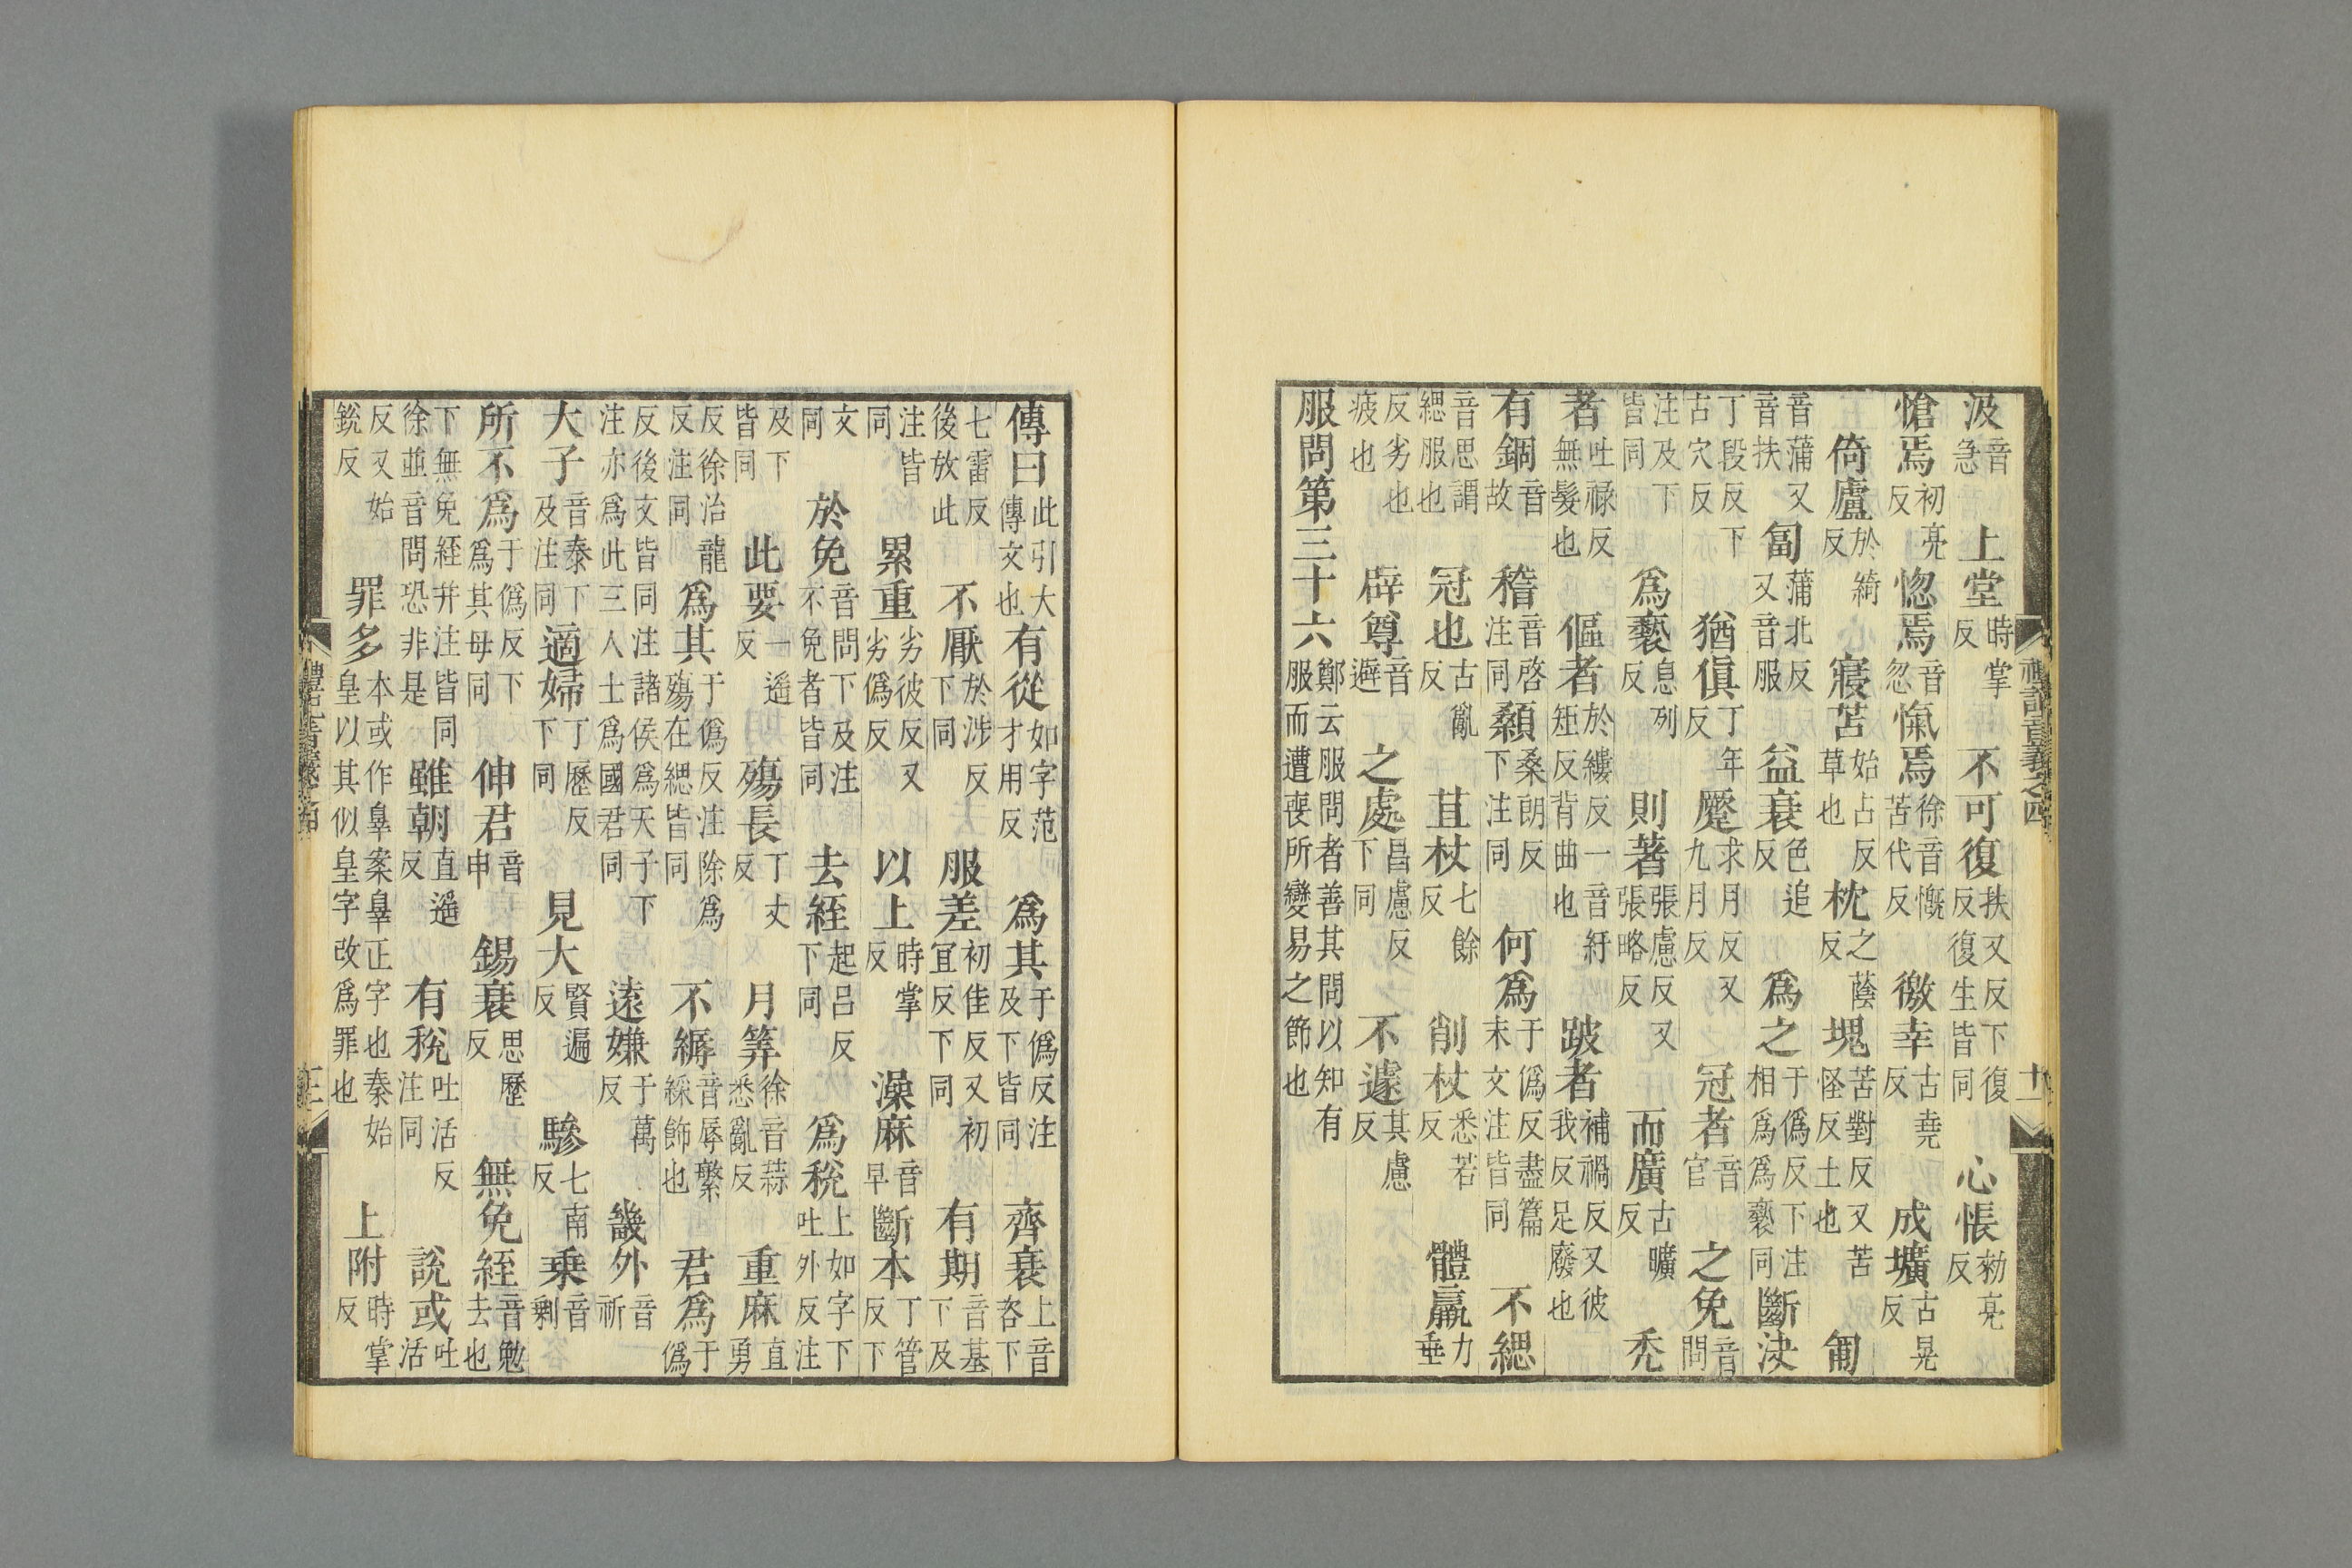 汲音急 上堂時掌反 不可復扶又反下復反復生皆同 心悵勑亮反
愴焉初亮反 惚焉音忽 愾焉徐音慨苦代反 徼幸古堯反 成壙古晃反
倚廬於綺反 寢苫始占反草也 枕之蔭反 塊苦對反又苦怪反土也 匍
音蒲又音扶 匐蒲北反又音服 益衰色追反 爲之于僞反下注相爲爲褻同 斷決
丁段反下古穴反 猶傎丁年反 蹷求月反又九月反 冠者音官 之免音問
注及下皆同 爲褻息列反 則著張慮反又張略反 而廣古曠反 禿
者吐祿反無髮也 傴者於縷反一音紆矩反背曲也 跛者補禍反又彼我反足廢也
有錮音故 稽音啓注同 顙桑朗反下注同 何爲于僞反盡篇末文注皆同 不緦
音思謂緦服也 冠也古亂反 苴杖七餘反 削杖悉若反 體羸力垂
反劣也疲也 辟尊音避 之處昌慮反下同 不遽其慮反
服問第三十六鄭云服問者善其問以知有服而遭喪所變易之節也
禮記音義之四 十一
傳曰此引大傳文也 有從如字范才用反 爲其于僞反注及下皆同 齊衰上音咨下
七雷反後放此 不厭於涉反下同 服差初佳反又初冝反下同 有期音基下及
注皆同 累重劣彼反又劣僞反 以上時掌反 澡麻音早 斷本丁管反下
文同 於免音問下及注不免者皆同 去絰起呂反下同 爲稅上如字下吐外反注
及下皆同 此要一遥反 殤長丁丈反 月筭徐音蒜悉亂反 重麻直勇
反徐治龍反注同 爲其于僞反注除爲殤在緦皆同 不縟音辱繁綵飾也 君爲于僞
反後文皆同注諸侯爲天子下注亦爲此三人士爲國君同 遠嫌于萬反 畿外音祈
大子音泰下及注同 適婦丁歷反下同 見大賢遍反 驂七南反 乗音剩
所不爲于僞反下爲其母同 伸君音申 錫衰思歷反 無免絰音勉去也
下無免絰并注皆同徐並音問恐非是 雖朝直遥反 有稅吐活反注同 說或吐活
反又始銳反 罪多本或作辠案辠正字也秦始皇以其似皇字改爲罪也 上附時掌反